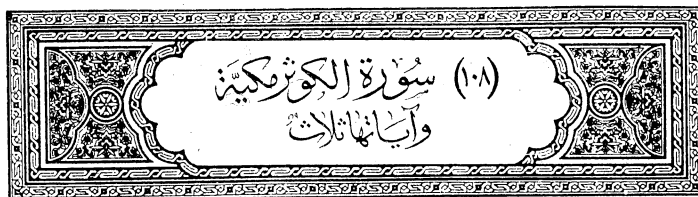 (١٠٨) سُورَة الكوثر مكيَّة
وآياتها ثلاثٌ